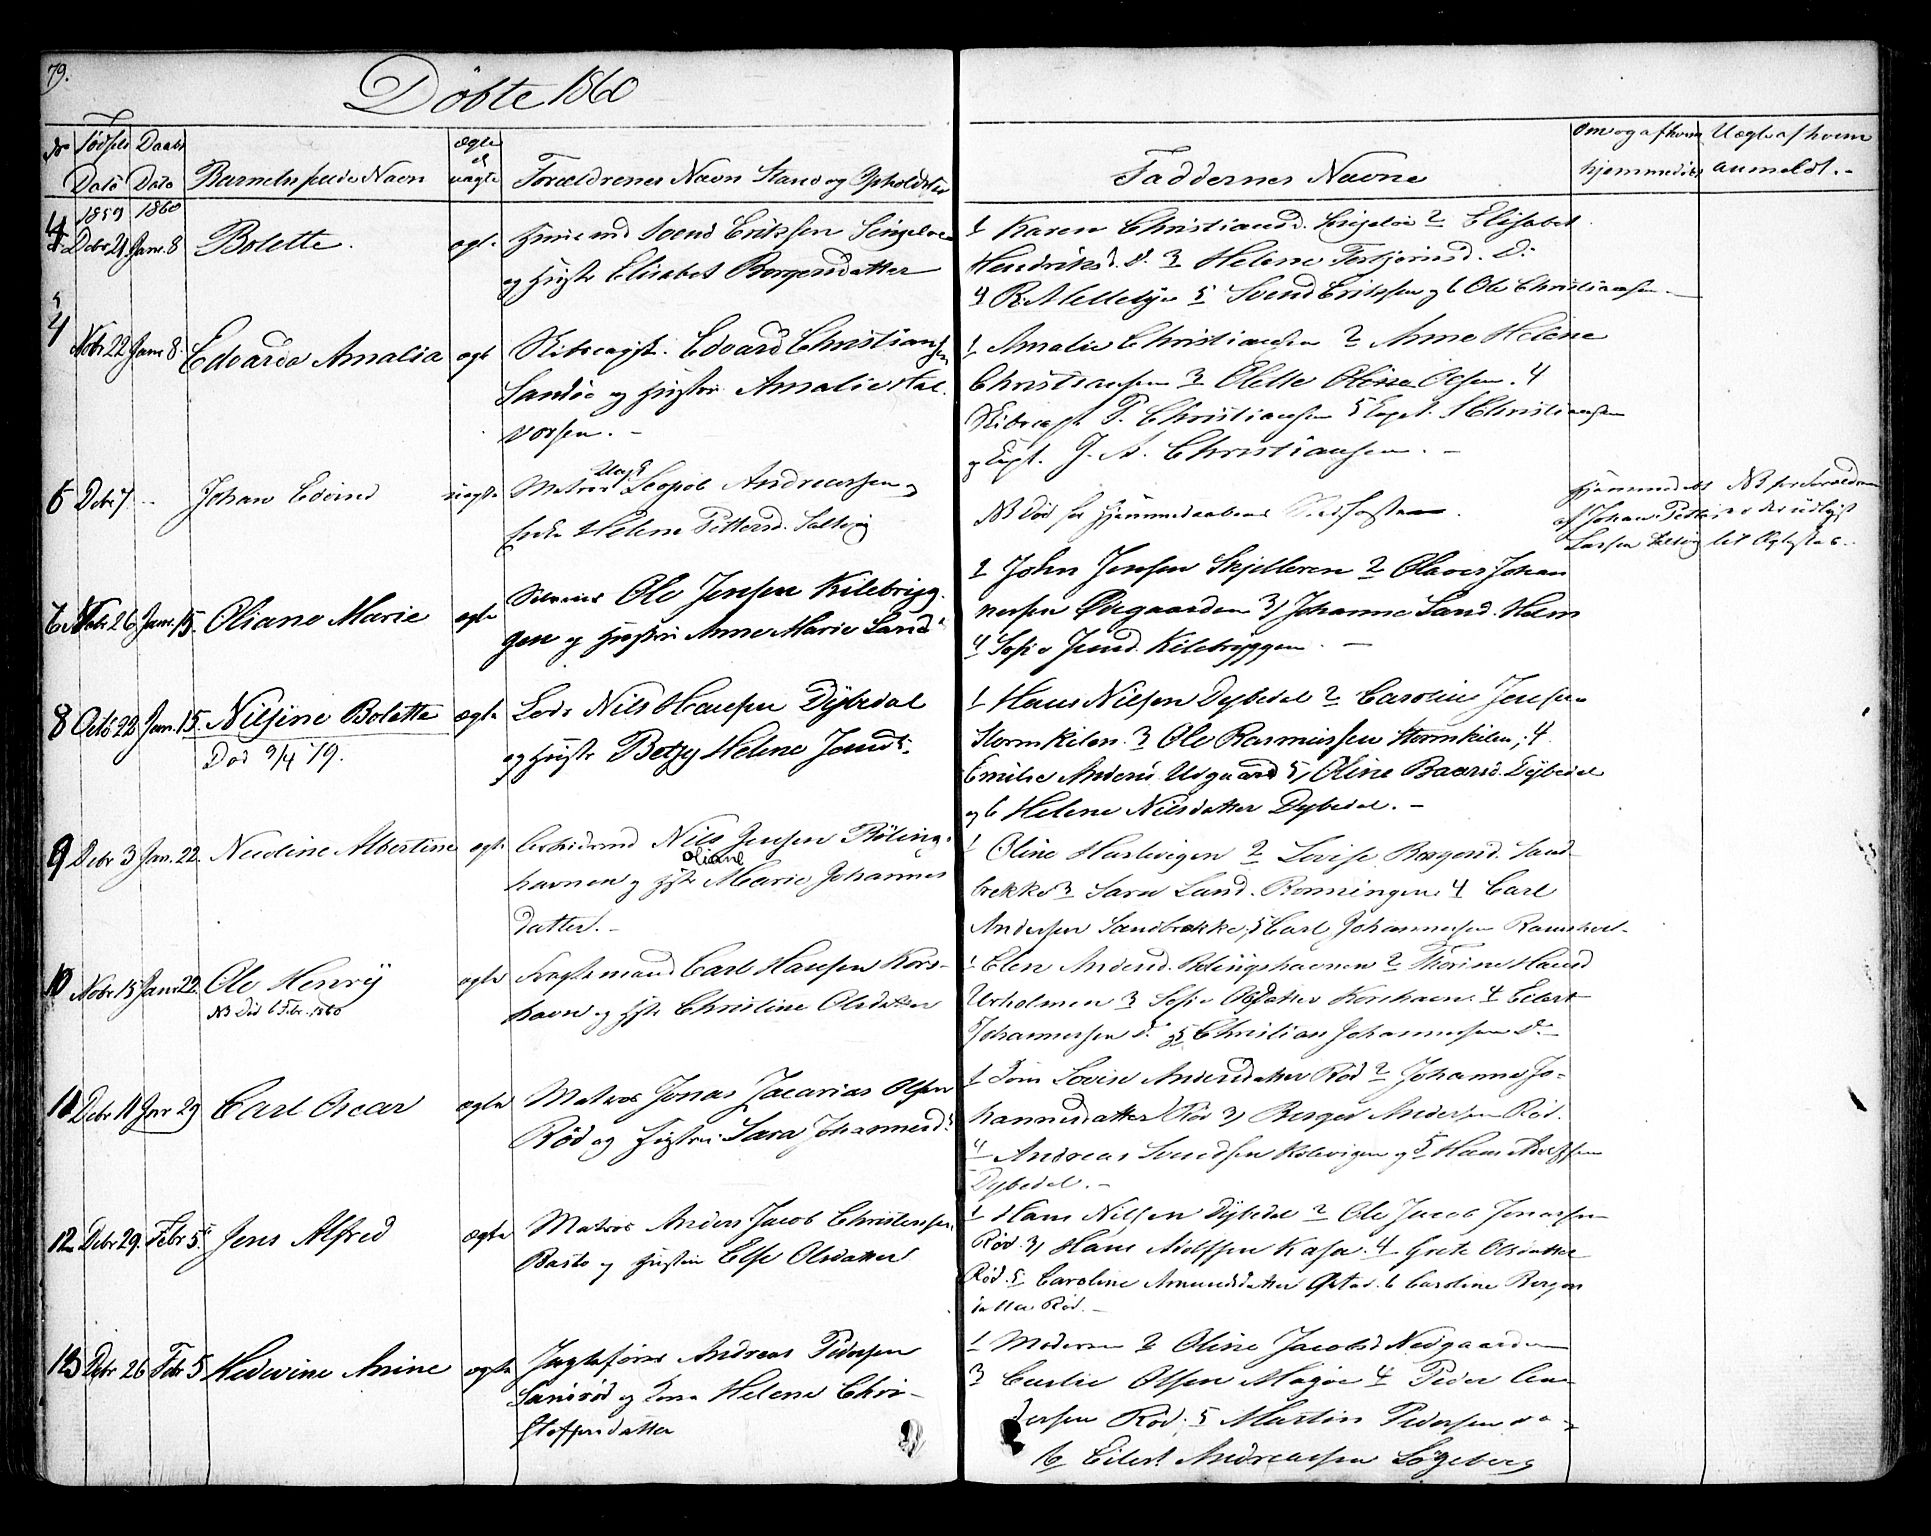 79.
Döbte 1860
No Födsels Daabs ægte
Dato Dato Barnets fulde Navn el uægte Forældrenes Navn Stand og Opholdsted
Faddernes Navne
Om og af hvem hjemmedöbt
Uægte af hvem anmeldt.-
1859 1860
4 Debr 21 Jan. 8 Bolette. ægte Svend Eriksen Singeløe
og Hustr Elisabet Borgersdatter
1 Karen Christiansd. Singeløe 2 Elisabet
Hendriksd. do. 3 Helene Torbjørnsd. do
4 R. Mellebye 5 Svend Eriksen og 6 Ole Christiansen.-
5
4 Nobr 22 Jan 8. Edvarda Amalia ægte Skibscapt. Edvard Christiansen
Sandöe og Hustru Amalie Hal-
vorsen.-
1 Amalie Christiansen 2 Anne Helene
Christiansen 3 Olette Olsen. 4
Skibscapt P. Christiansen 5 Capt. Christiansen
og Capt. J. A. Christiansen.-
6 Debr 7 - Johan Edvind uægte Matros Ungk Leopold Andreassen og
Enke Helene Pettersd. Saltvig
NB Död før Hjemmedaabens Stadfæstelse.
Hjemmedøbt
af Johan Petter
Larsen Saltvig
NB for Forældrene
7 Nobr 26 Jan. 15. Oliane Marie ægte Ole Jensen Kilebryg-
gen og Hustru Anne Marie Larsd.
1 John Jensen Skjelleren 2 Olaves Johan
nesen Ødegaarden 3) Johanne Larsd. Holm
4 Sofie Jensd. Kilebryggen.-
8 Octb 22 Jan. 15. Nilsine Bolette ægte Lods Nils Hansen Dybedal
Död 9/4 79.
og Hustr Betzy Helene Jensd.
1 Hans Nilsen Dybedal 2 Caroline Jensen
Stormkilen. 3 Ole Rasmussen Stormkilen; 4
Emilie Andersd. Udgaard 5) Oline Baarsd. Dybedal
og 6 Helene Nilsdatter Dybedal.-
9 Debr 3 Jan. 22. Nicoline Albertine ægte Nils Jensen Röling-
havnen og Hstr Oliane Marie Johannes
datter.-
1 Oline Haslevigen 2 Lovise Borgersd. Sand-
brekke 3 Sara Larsd. Rønningen 4 Carl
Andersen Sandbrække; 5 Carl Johannesen Ramshval-
10 Nobr 15 Jan 22. Ole Henrij ægte Fragtemand Carl Hansen Kors-
NB Död 6 Febr. 1860
havn og Hstr Christine Olsdatter
1 Elen Andersd. Rölingshavnen 2 Thorine Hansd
Urholmen 3 Sofie Olsdatter Korshavn. 4 Eilert
Johannessen do. og 5 Christian Johannessen do.-
11 Debr 11 Jan 29 Carl Oscar ægte Matros Jonas Zacarias Olsen
Röd og Hustru Sara Johannesd.
1 Lovise Andersdatter Röd 2 Johanne Jo-
hannesdatter Röd 3) Borger Andersen Röd.
4 Andreas Svendsen Kolevigen og 5 Hans Adolfsen
Dybedal.-
12 Debr 29. Febr 5. Jens Alfred ægte Matros Anders Jacob Christensen
Bastö og Hustru Else Olsdatter
1 Hans Nilsen Dybedal 2 Ole Jacob Jonassen
Röd. 3) Hans Adolfsen Kasa. 4 Grete Olsdatter
Röd. 5 Caroline Amundsdatter 6 Caroline Borger
datter Röd.-
13 Debr 26 Febr 5 Hedevine Anine ægte Jagtefører Andreas Pedersen
Sandröd og Kona Helene Chri-
stoffersdatter
1 Moderen 2 Oline Jacobsd Nedgaarden
3 Ceselie Olsen Magöe 4 Peder An-
dersen Röd. 5 Martin Pedersen do-
6 Eilert Andreassen Lögeberg